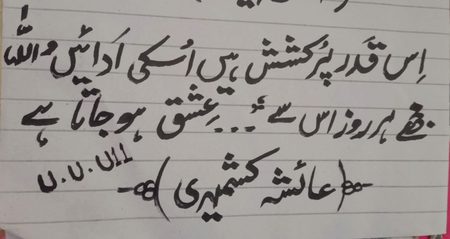 اِس قَدر پُرکشش ہیں اُسکی اَدائیں واللہ
مجھے ہر روز اس سے ... عِشق ہو جاتا ہے
(عائشہ کشمیری)